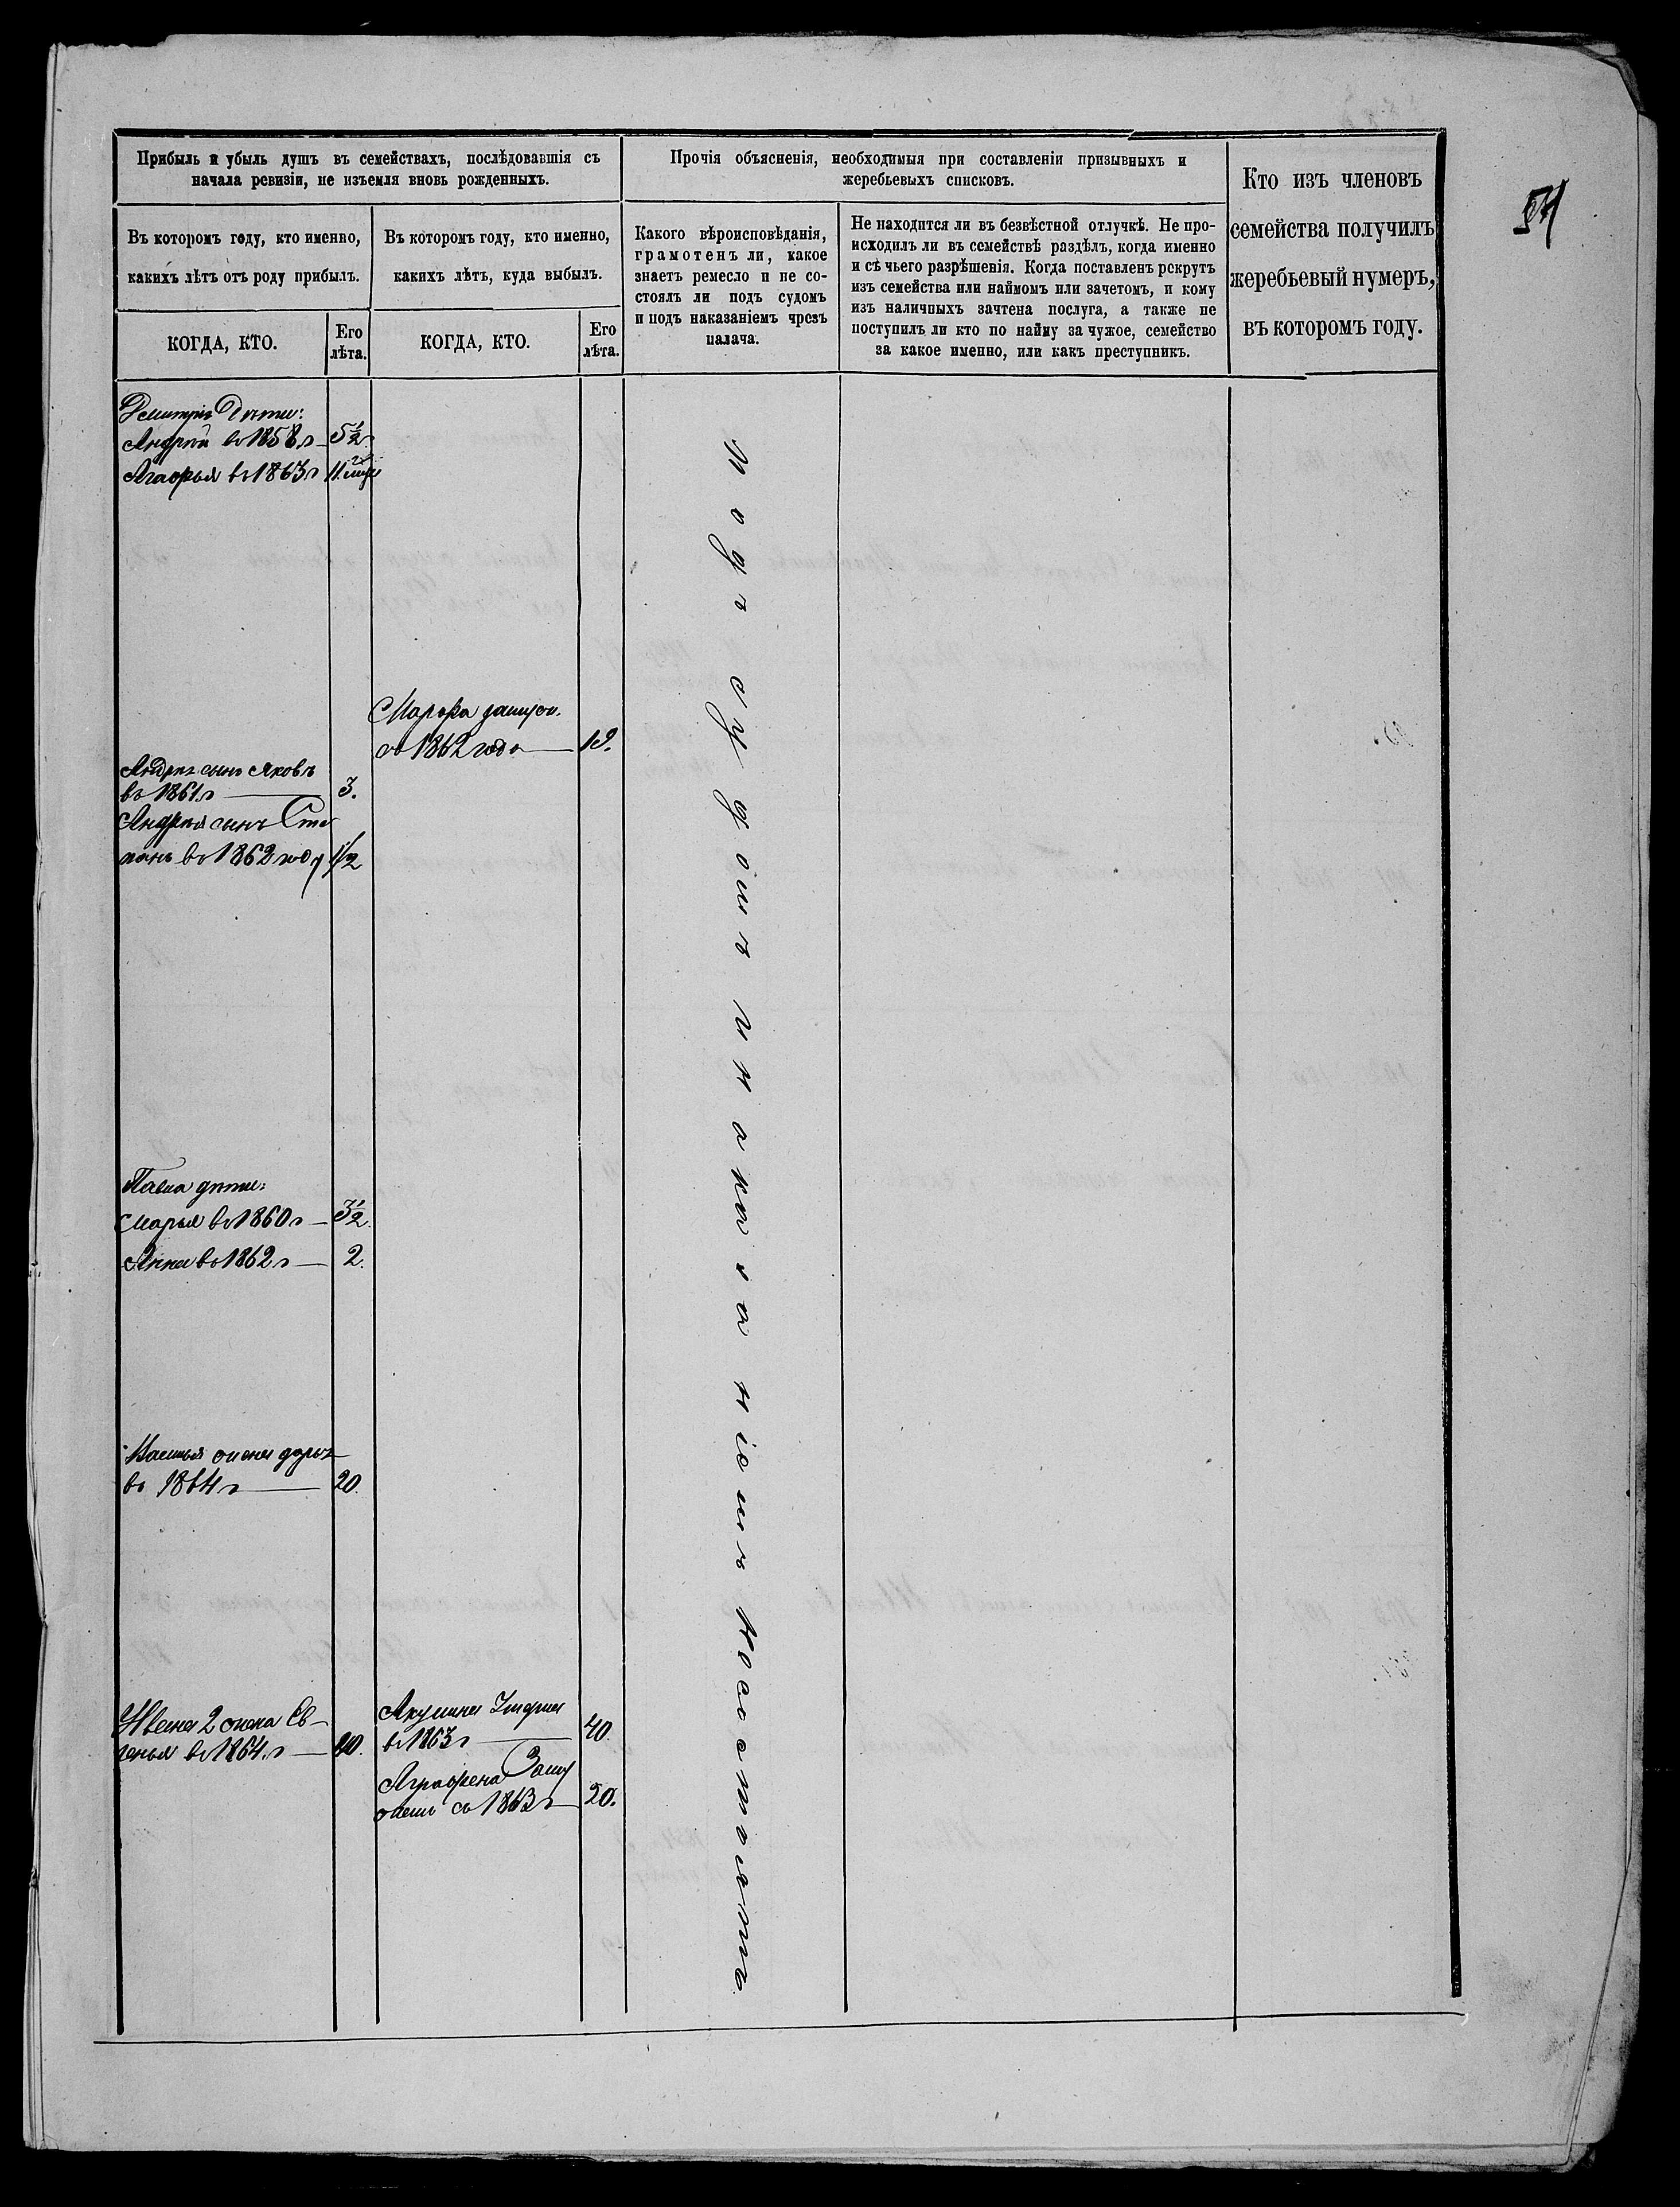 54
Прибыль и убыль душъ въ семействахъ, послѣдовавшія съ
начала ревизіи, не изъемля вновь рожденныхъ.
Прочія объясненія, необходимыя при составленіи призывныхъ и
жеребьевыхъ списковъ.
Кто изъ членовъ
семейства получилъ
жеребьевый нумеръ,
въ которомъ году.
Въ которомъ году, кто именно,
какихъ лѣтъ отъ роду прибылъ.
Въ которомъ году, кто именно,
какихъ лѣтъ, куда выбылъ.
Какого вѣроисповѣданія,
грамотенъ ли, какое
знаетъ ремесло и не со-
стоялъ ли подъ судомъ
и подъ наказаніемъ чрезъ
палача.
Не находится ли въ безвѣстной отлучкѣ. Не про-
исходилъ ли въ семействѣ раздѣлъ, когда именно
и съ чьего разрѣшенія. Когда поставленъ рекрутъ
изъ семейства или наймомъ или зачетомъ, и кому
изъ наличныхъ зачтена послуга, а также не
поступилъ ли кто по найму за чужое, семейство
за какое именно, или какъ преступникъ.
КОГДА, КТО.
Его
лѣта.
КОГДА, КТО.
Его
лѣта.
Дмитрія Дѣти:
Андрей въ 1858 г 5½
въ 1863 г 11
Марфа замуж.
въ 1862 года 19.
Андрея сынъ Яковъ
въ 1861 г 3.
Андрея сынъ Сте
панъ въ 1862 году 1½
Павла дѣти:
Марья въ 1860 г 3½
Анна въ 1862 г 2.
жена
въ 1864 г 20.
Ивана 2 жена Ев-
генья въ 1864 г 40.
Акулина Умерла
въ 1863 г 40.
Аграфена Заму
жемъ съ 1863 г 20.
Подъ судомъ и наказаніемъ не состоятъ